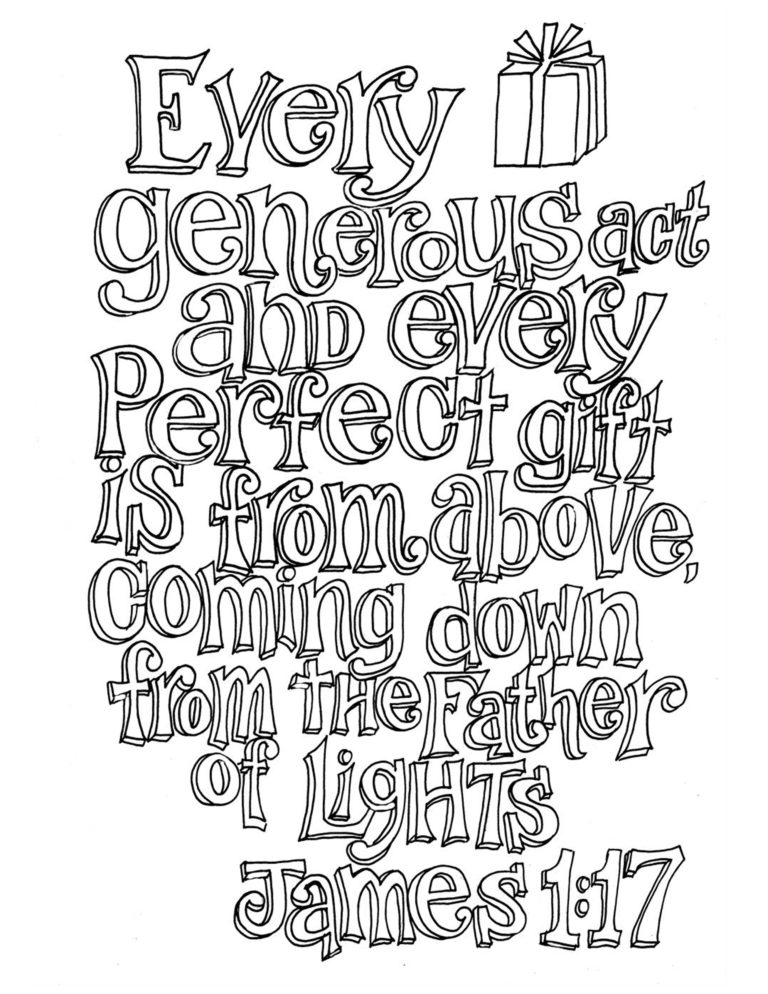 Every
generous act
and every
Perfect gift
is from above,
coming down
from the Father
of Lights
James 1:17